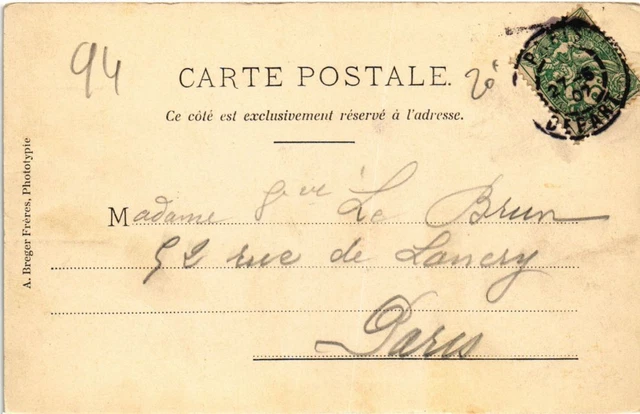 94
CARTE POSTALE.
20
Ce côté est exclusivement réservé à l'adresse.
PARIS
DEPART
A. Breger Frères, Phototypie
Madame Le Brun
52 rue de Lancry
Paris